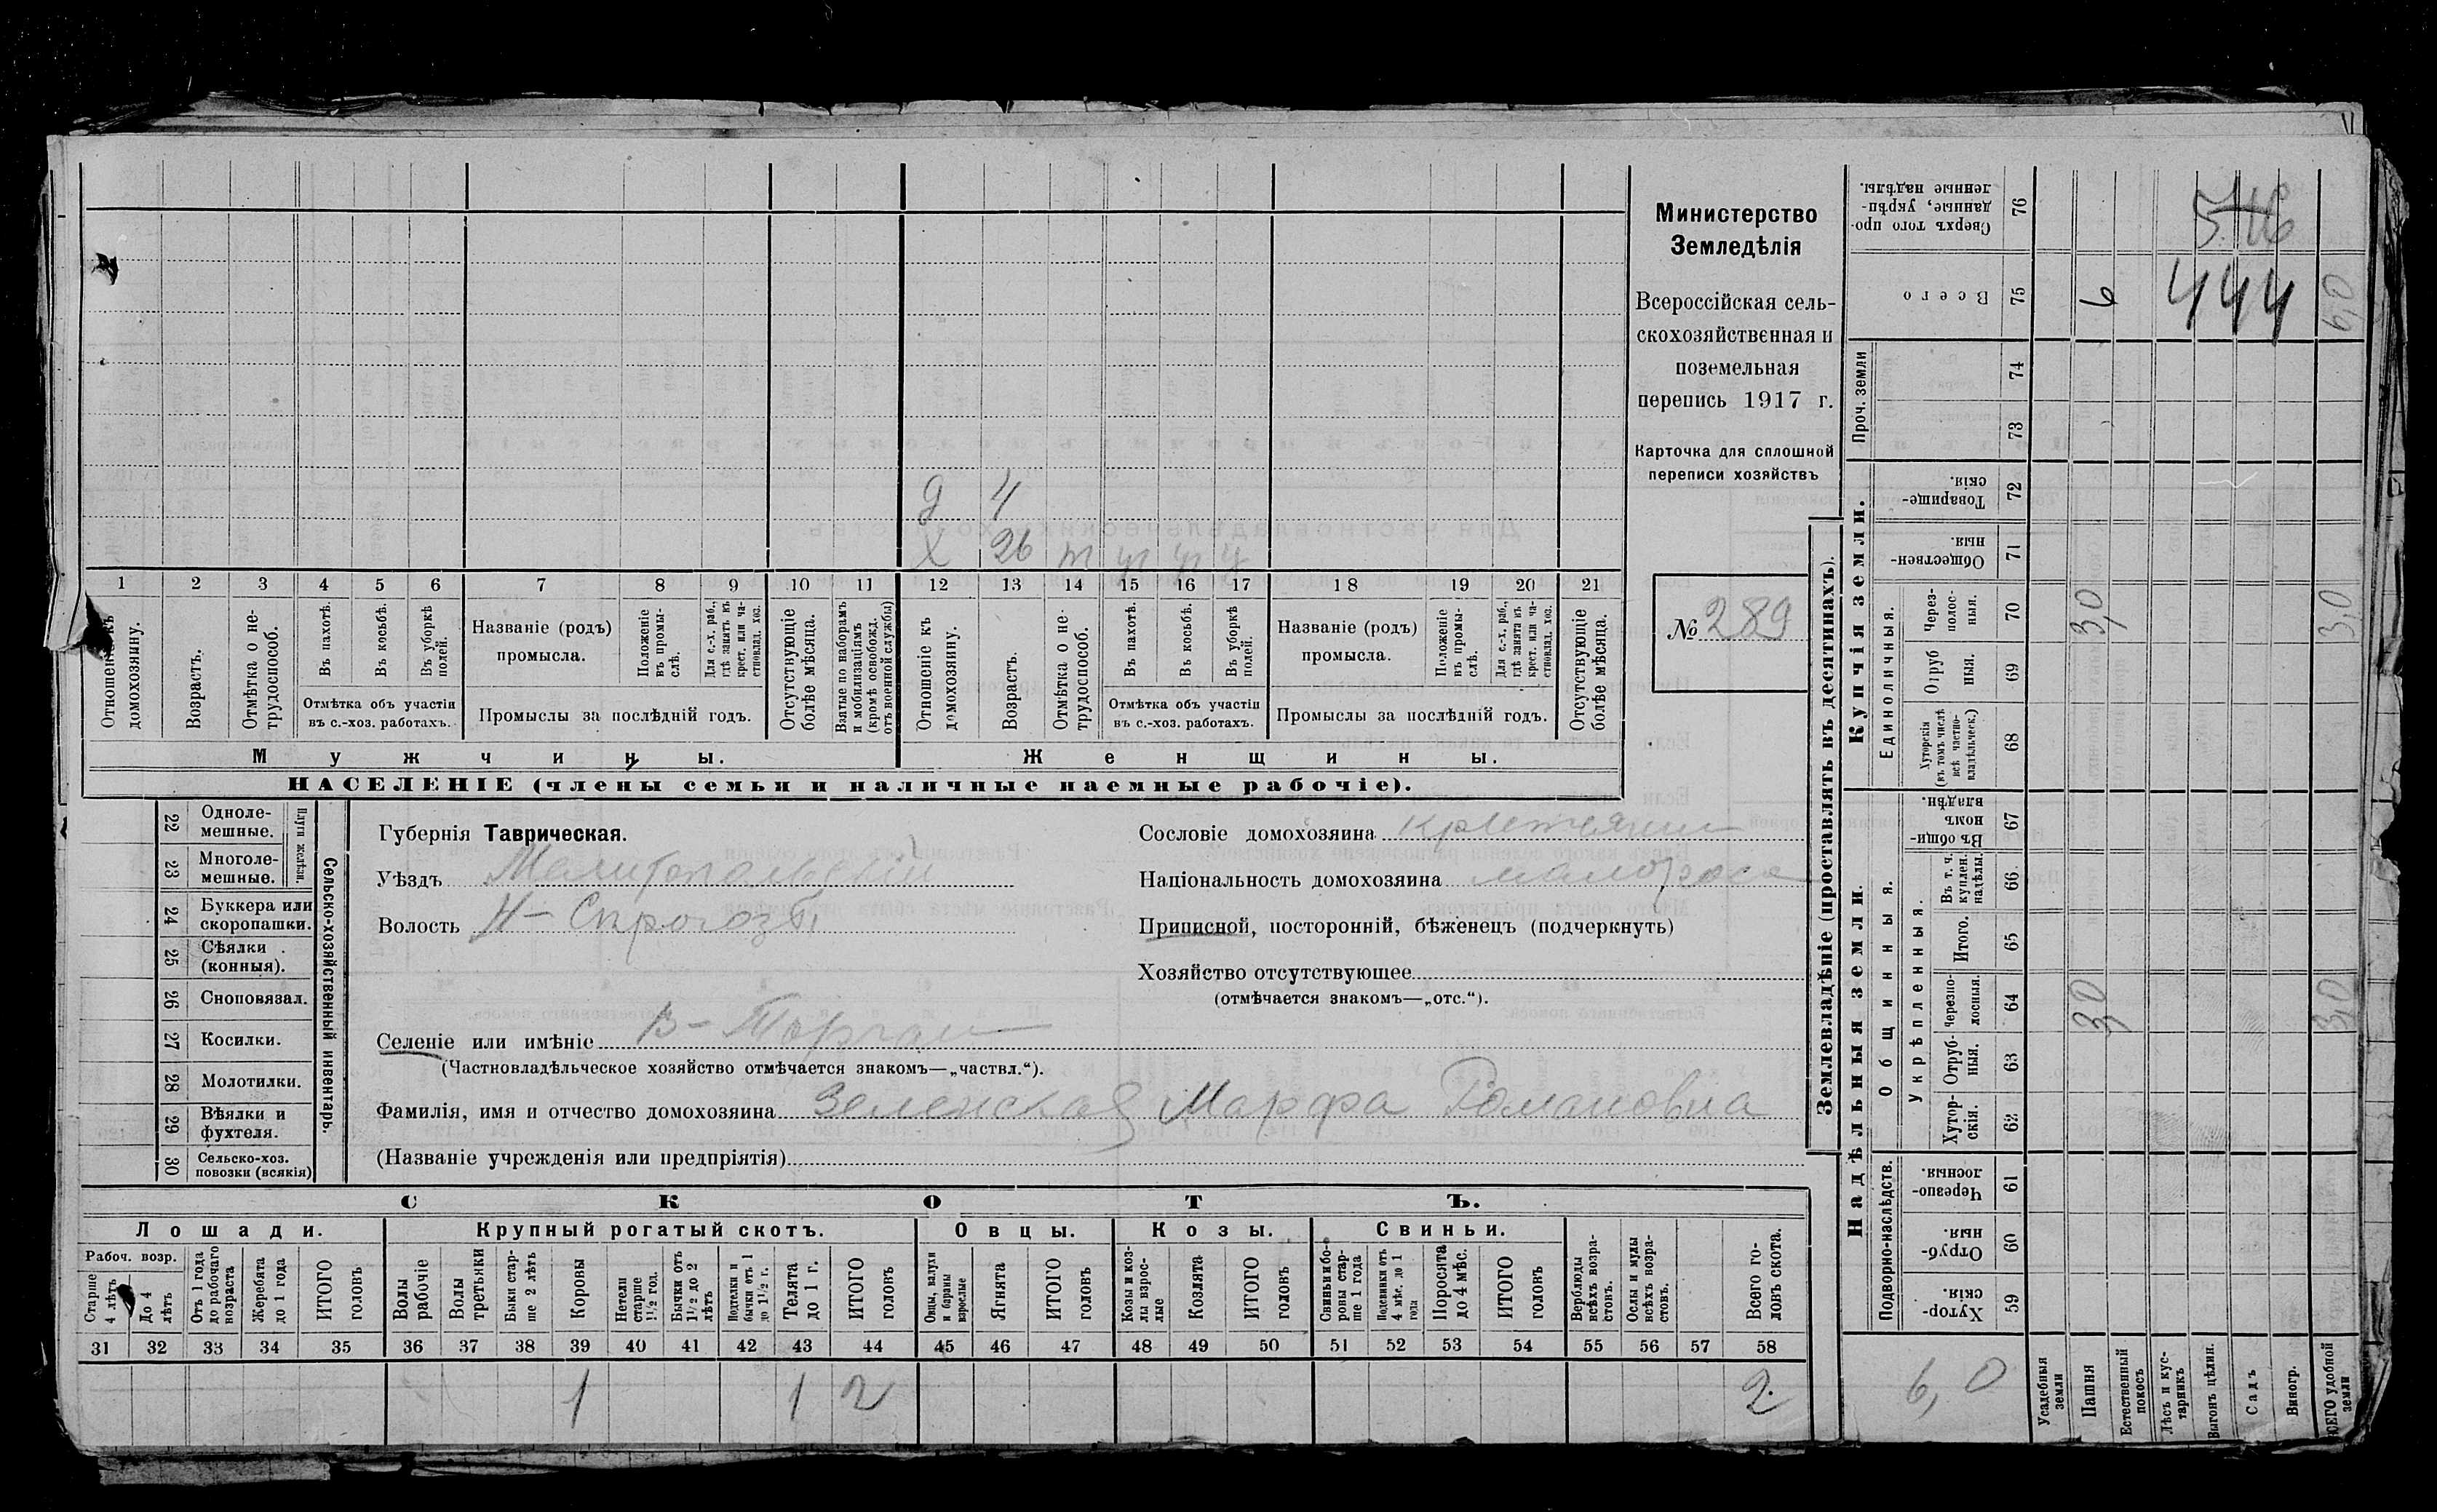 Министерство
Земледѣлія
Всероссійская сель-
скохозяйственная и
поземельная
перепись 1917 г.
Карточка для сплошной
переписи хозяйствъ
№ 289
д 4
х 26
1 2 3 4 5 6 7 8 9 10 11 12 13 14 15 16 17 18 19 20 21
Отношеніе къ домохозяину.
Возрастъ.
Отмѣтка о не-трудоспособ.
Въ пахотѣ.
Въ косьбѣ.
Въ уборкѣ полей.
Отмѣтка объ участіи
въ с.-хоз. работахъ.
Названіе (родъ)
промысла.
Положеніе въ промы-слѣ.
Для с.-х. раб., гдѣ занятъ въ крест. или ча-стновлад. хоз.
Промыслы за послѣдній годъ.
Отсутствующіе болѣе мѣсяца.
Взятые по наборамъ и мобилизаціямъ (кромѣ освобожд. отъ военной службы)
Отношеніе къ домохозяину.
Возрастъ.
Отмѣтка о не-трудоспособ.
Въ пахотѣ.
Въ косьбѣ.
Въ уборкѣ полей.
Отмѣтка объ участіи
въ с.-хоз. работахъ.
Названіе (родъ)
промысла.
Положеніе въ промы-слѣ.
Для с.-х. раб., гдѣ занята въ крест. или ча-стновлад. хоз.
Промыслы за послѣдній годъ.
Отсутствующіе болѣе мѣсяца.
Мужчины. Женщины.
НАСЕЛЕНІЕ (члены семьи и наличные наемные рабочіе).
22 Одноле-мешные.
23 Многоле-мешные.
Плуги желѣзн.
24 Буккера или скоропашки.
25 Сѣялки (конныя).
26 Сноповязал.
27 Косилки.
28 Молотилки.
29 Вѣялки и фухтеля.
30 Сельско-хоз. повозки (всякія)
Сельско-хозяйственный инвентарь.
Губернія Таврическая.
Уѣздъ Мелитопольскій
Волость Н-Сѣрогозы
Селеніе или имѣніе В-Торгаи
(Частновладѣльческое хозяйство отмѣчается знакомъ—„частвл.“).
Фамилія, имя и отчество домохозяина Зеленская Марфа Романовна
(Названіе учрежденія или предпріятія)
Сословіе домохозяина крестьянин
Національность домохозяина малоросс
Приписной, посторонній, бѣженецъ (подчеркнуть)
Хозяйство отсутствующее
(отмѣчается знакомъ—„отс.“).
СКОТЪ.
Лошади. Крупный рогатый скотъ. Овцы. Козы. Свиньи.
Рабоч. возр.
Старше 4 лѣтъ
До 4 лѣтъ
Отъ 1 года до рабочаго возраста
Жеребята до 1 года
ИТОГО головъ
Волы рабочіе
Волы третьяки
Быки стар-ше 2 лѣтъ
Коровы
Нетели старше 1½ год.
Бычки отъ 1½ до 2 лѣтъ
Подтелки и бычки отъ 1 до 1½ г.
Телята до 1 г.
ИТОГО головъ
Овцы, валухи и бараны взрослые
Ягнята
ИТОГО головъ
Козы и коз-лы взрос-лые
Козлята
ИТОГО головъ
Свиньи и бо-ровы стар-ше 1 года
Подсвинки отъ 4 мѣс. до 1 года
Поросята до 4 мѣс.
ИТОГО головъ
Верблюды всѣхъ возра-стовъ.
Ослы и мулы всѣхъ возра-стовъ.
Всего го-ловъ скота.
31 32 33 34 35 36 37 38 39 40 41 42 43 44 45 46 47 48 49 50 51 52 53 54 55 56 57 58
1 1 2 2
Землевладѣніе (проставлять въ десятинахъ).
Надѣльныя земли. Купчія земли. Проч. земли
Подворно-наслѣдств.
Общинныя.
Укрѣпленныя.
Единоличныя.
Сверхъ того про-данные, укрѣп-ленные надѣлы. 76 546
Всего 75 6 444 6,0
74
73
Товарище-скія. 72
Обществен-ныя. 71
Через-полос-ныя. 70 3,0 3,0
Отруб ныя. 69
Хуторскія (въ томъ числѣ всѣ частно-владѣльческ.) 68
Въ общи-номъ владѣн. 67
Въ т. ч. куплен. надѣлы. 66
Итого. 65
Черезпо-лосныя. 64 3,0 3,0
Отруб-ныя. 63
Хутор-скія. 62
Черезпо-лосныя. 61
Отруб-ныя. 60
Хутор-скія. 59
6,0
Усадебныя земли
Пашня
Естественный покосъ
Лѣсъ и кус-тарникъ
Выгонъ цѣлин.
Садъ
Виногр.
ВСЕГО удобной земли